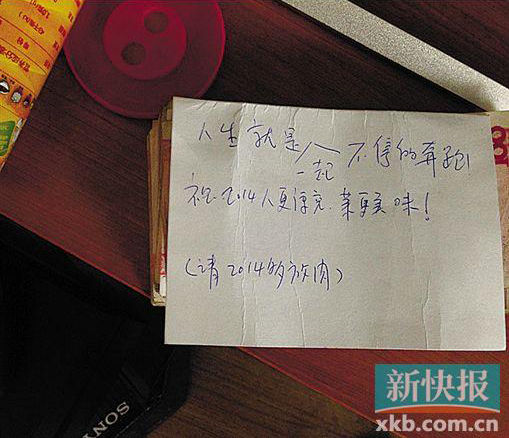 人生就是一起不停的奔跑
祝2014人更漂亮.菜更美味!
(请2014多放肉)
SONY
新快报
xkb.com.cn